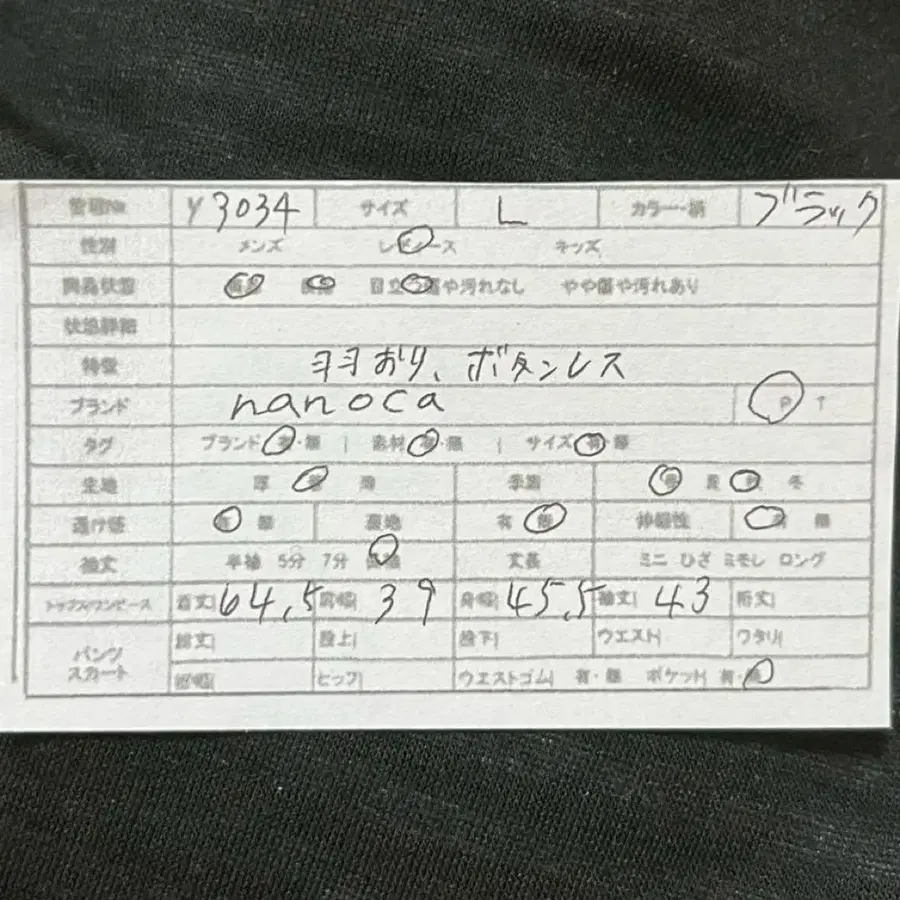 管理No Y3034 サイズ L カラー・柄 ブラック
性別 メンズ レディース キッズ
商品状態 目立つ傷や汚れなし やや傷や汚れあり
状態詳細
特徴 羽おり、ボタンレス
ブランド nanoca P T
タグ ブランド 有・無 | 素材 有・無 | サイズ 有・無
生地 厚 薄 季節 春 夏 秋 冬
透け感 有 無 裏地 有 無 伸縮性 有 無
袖丈 半袖 5分 7分 長袖 丈長 ミニ ひざ ミモレ ロング
トップス/ワンピース 着丈 64.5 肩幅 39 身幅 45.5 袖丈 43 裄丈
パンツ スカート 総丈 股上 股下 ウエスト ワタリ
裾幅 ヒップ ウエストゴム 有・無 ポケット 有・無